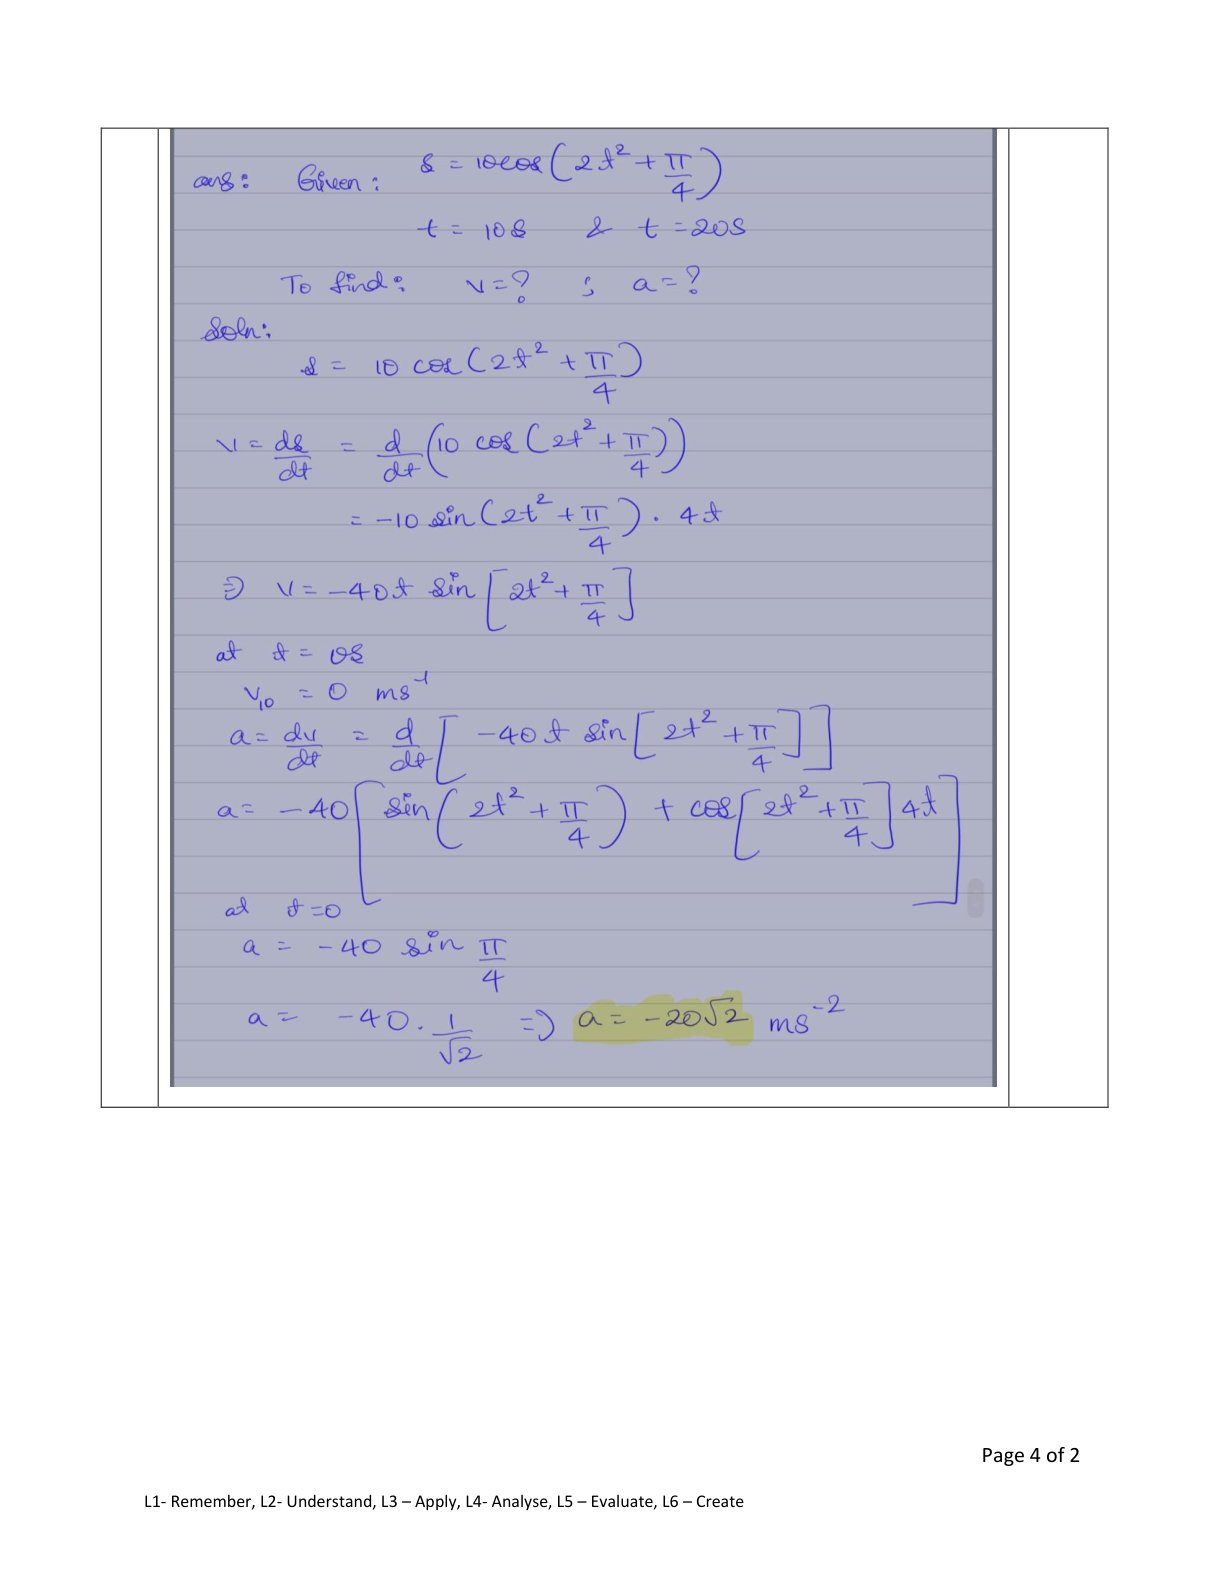 ans: Given: s = 10cos(2t² + π/4)
t = 10s & t = 20s
To find: v = ? ; a = ?
Soln:
s = 10 cos(2t² + π/4)
v = ds/dt = d/dt (10 cos(2t² + π/4))
= -10 sin(2t² + π/4) . 4t
⇒ v = -40t sin[2t² + π/4]
at t = 0s
v₁₀ = 0 ms⁻¹
a = dv/dt = d/dt [-40t sin[2t² + π/4]]
a = -40[sin(2t² + π/4) + cos[2t² + π/4] 4t]
at t = 0
a = -40 sin π/4
a = -40 . 1/√2 ⇒ a = -20√2 ms⁻²
Page 4 of 2
L1- Remember, L2- Understand, L3 – Apply, L4- Analyse, L5 – Evaluate, L6 – Create